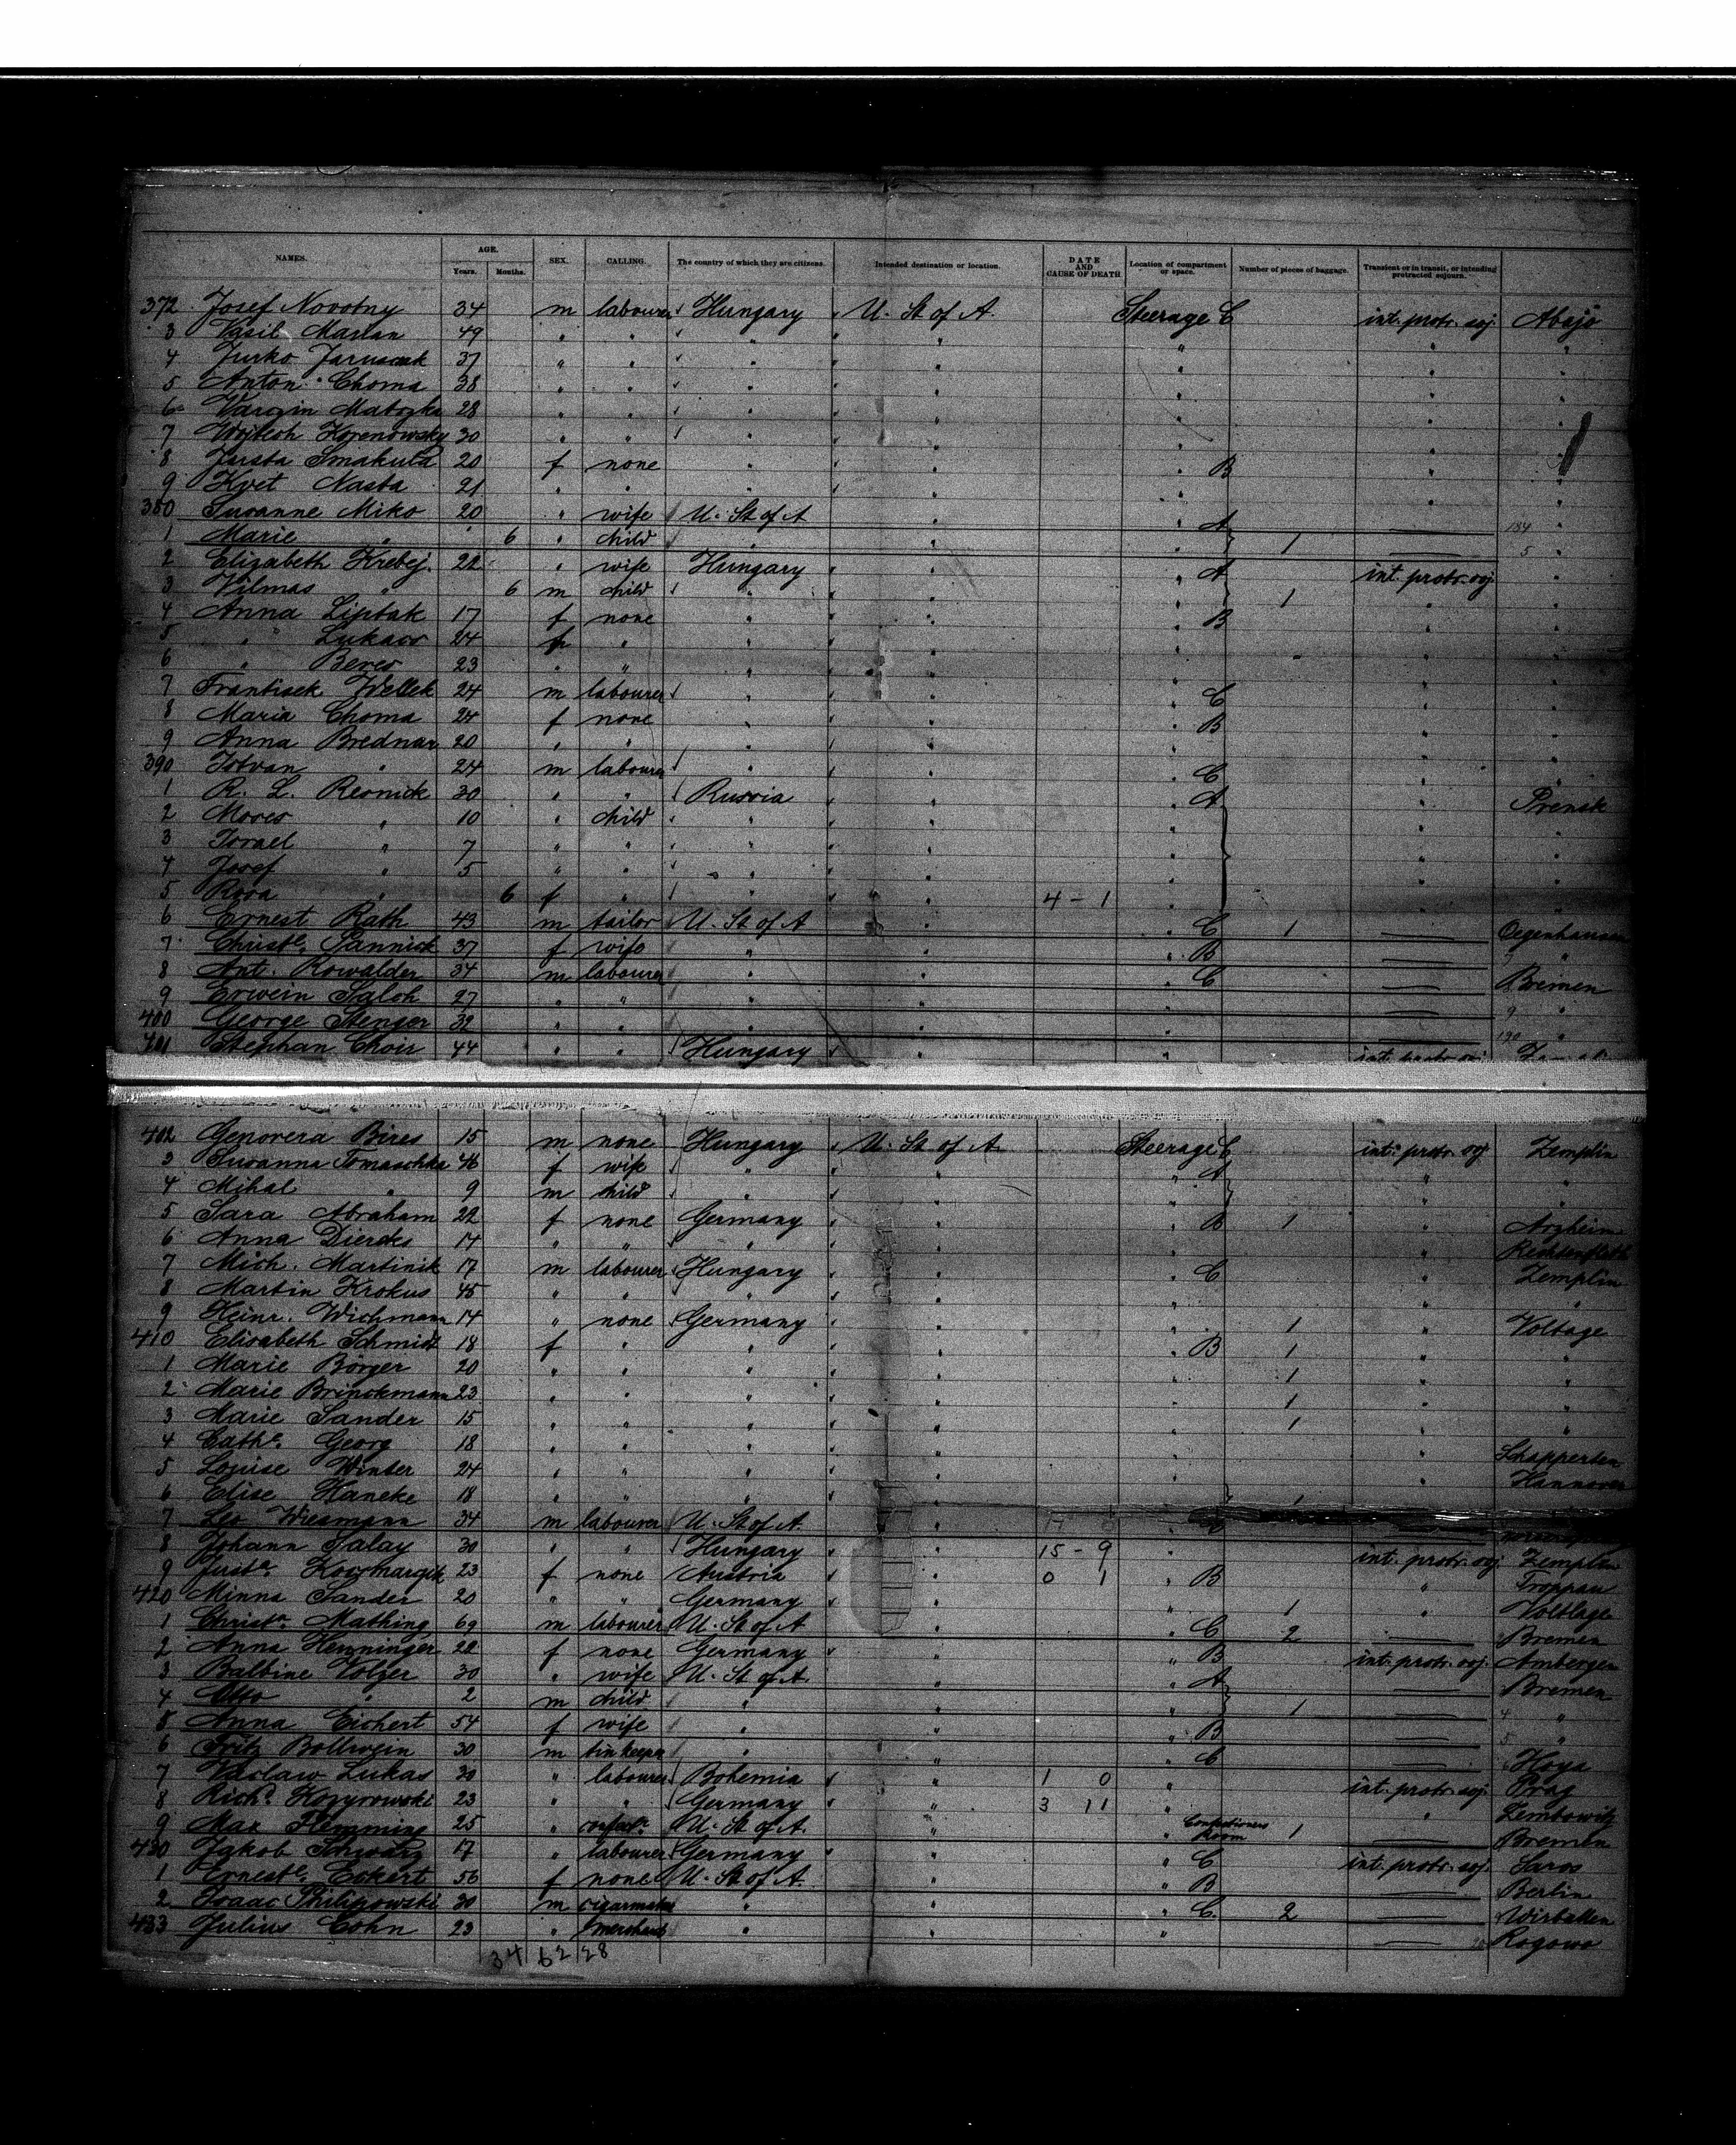 NAMES. AGE. Years. Months. SEX. CALLING. The country of which they are citizens. Intended destination or location. DATE AND CAUSE OF DEATH Location of compartment or space. Number of pieces of baggage. Transient or in transit, or intending protracted sojourn.
372 Josef Novotny 34 m labourer Hungary U. St of A. Steerage C int. protr. soj. Abajo
3 Vasil Marian 49 " " " " " " "
4 Jurko 37 " " " " " " "
5 Anton Choma 38 " " " " " " "
6 28 " " " " " " "
7 30 " " " " " " "
8 Smakula 20 f none " " " B " "
9 Nasta 21 " " " " " " "
380 Susanne Miko 20 " wife U. St of A " " A 184 "
1 Marie " 6 " child " " " 1 5 "
2 Elizabeth Krebej. 22 " wife Hungary " " A int. protr. soj. "
3 Vilmas " 6 m child " " " 1 " "
4 Anna Liptak 17 f none " " " B " "
5 " Lukacs 24 " " " " " " "
6 " Beres 23 " " " " " " "
7 Frantisek Wellek 24 m labourer " " " C " "
8 Maria Choma 24 f none " " " B " "
9 Anna Brednar 20 " " " " " " "
390 Istvan " 24 m labourer " " " C " "
1 R. L. Resnick 30 " " Russia " " A " Prensk
2 Moses " 10 " child " " " " "
3 Israel " 7 " " " " " " "
4 Josef " 5 " " " " " " "
5 Rosa " 6 f " " " 4 - 1 " " "
6 Ernest Rath 43 m tailor U. St of A " " C 1
7 Christe. Sannick 37 f wife " " " B "
8 Ant. Rowalder 34 m labourer " " " C Bremen
9 Erwein Saloh 27 " " " " " 9 "
400 George Stenger 32 " " " " " 190 "
401 Stephan Choir 44 " " Hungary " " int. protr. soj.
402 Genovera Bires 15 m none Hungary U. St of A. Steerage C int. protr. soj. Zemplin
3 Susanna Tomaschka 46 f wife " " " A " "
4 Mihal " 9 m child " " " " "
5 Sara Abraham 22 f none Germany " " B 1 " Arzheim
6 Anna Diercks 14 " " " " " " Rechtenfleth
7 Mich. Martinik 17 m labourer Hungary " " C " Zemplin
8 Martin Krokus 45 " " " " " " "
9 Heinr. Wichmann 14 " none Germany " " 1 " Voltage
410 Elisabeth Schmidt 18 f " " " " B 1 " "
1 Marie Börger 20 " " " " " 1 " "
2 Marie Brinckmann 23 " " " " " 1 " "
3 Marie Sander 15 " " " " " 1 " "
4 Cathe. Georg 18 " " " " " "
5 Louise Winter 24 " " " " " " Hannover
6 Elise Haneke 18 " " " " " 1
7 Leo Wiesmann 34 m labourer U. St of A. "
8 Johann Salay 30 " " Hungary " 15 - 9 " int. protr. soj. Zemplin
9 23 f none Austria " 0 1 " B " Troppau
420 Minna Sander 20 " " Germany " " 1 " Voltlage
1 Christn. Mathing 69 m labourer U. St of A " " C 2 Bremen
2 Anna Henninger 22 f none Germany " " B int. protr. soj. Ambergen
3 Balbine Volzer 30 " wife U. St of A. " " A Bremen
4 Otto " 2 m child " " " 1 4 "
5 Anna Eichert 54 f wife " " " B 5 "
6 Fritz Bollwein 30 m " " " C Hoya
7 Vaclaw Lukas 30 " labourer Bohemia " 1 0 " int. protr. soj. Prag
8 Richd. Kozyrowski 23 " " Germany " 3 11 " " Zembowitz
9 Max Flemming 25 " confect. U. St of A. " " Confectioners Room 1 Bremen
430 Jakob Schwarz 17 " labourer Germany " " C int. protr. soj. Saros
1 Erneste. Eckert 56 f none U. St of A. " " B Berlin
2 Isaac Philipowski 30 m cigarmaker " " " C. 2 Wirballen
433 Julius Cohn 23 " merchant " " " Rogowo
34 62 28